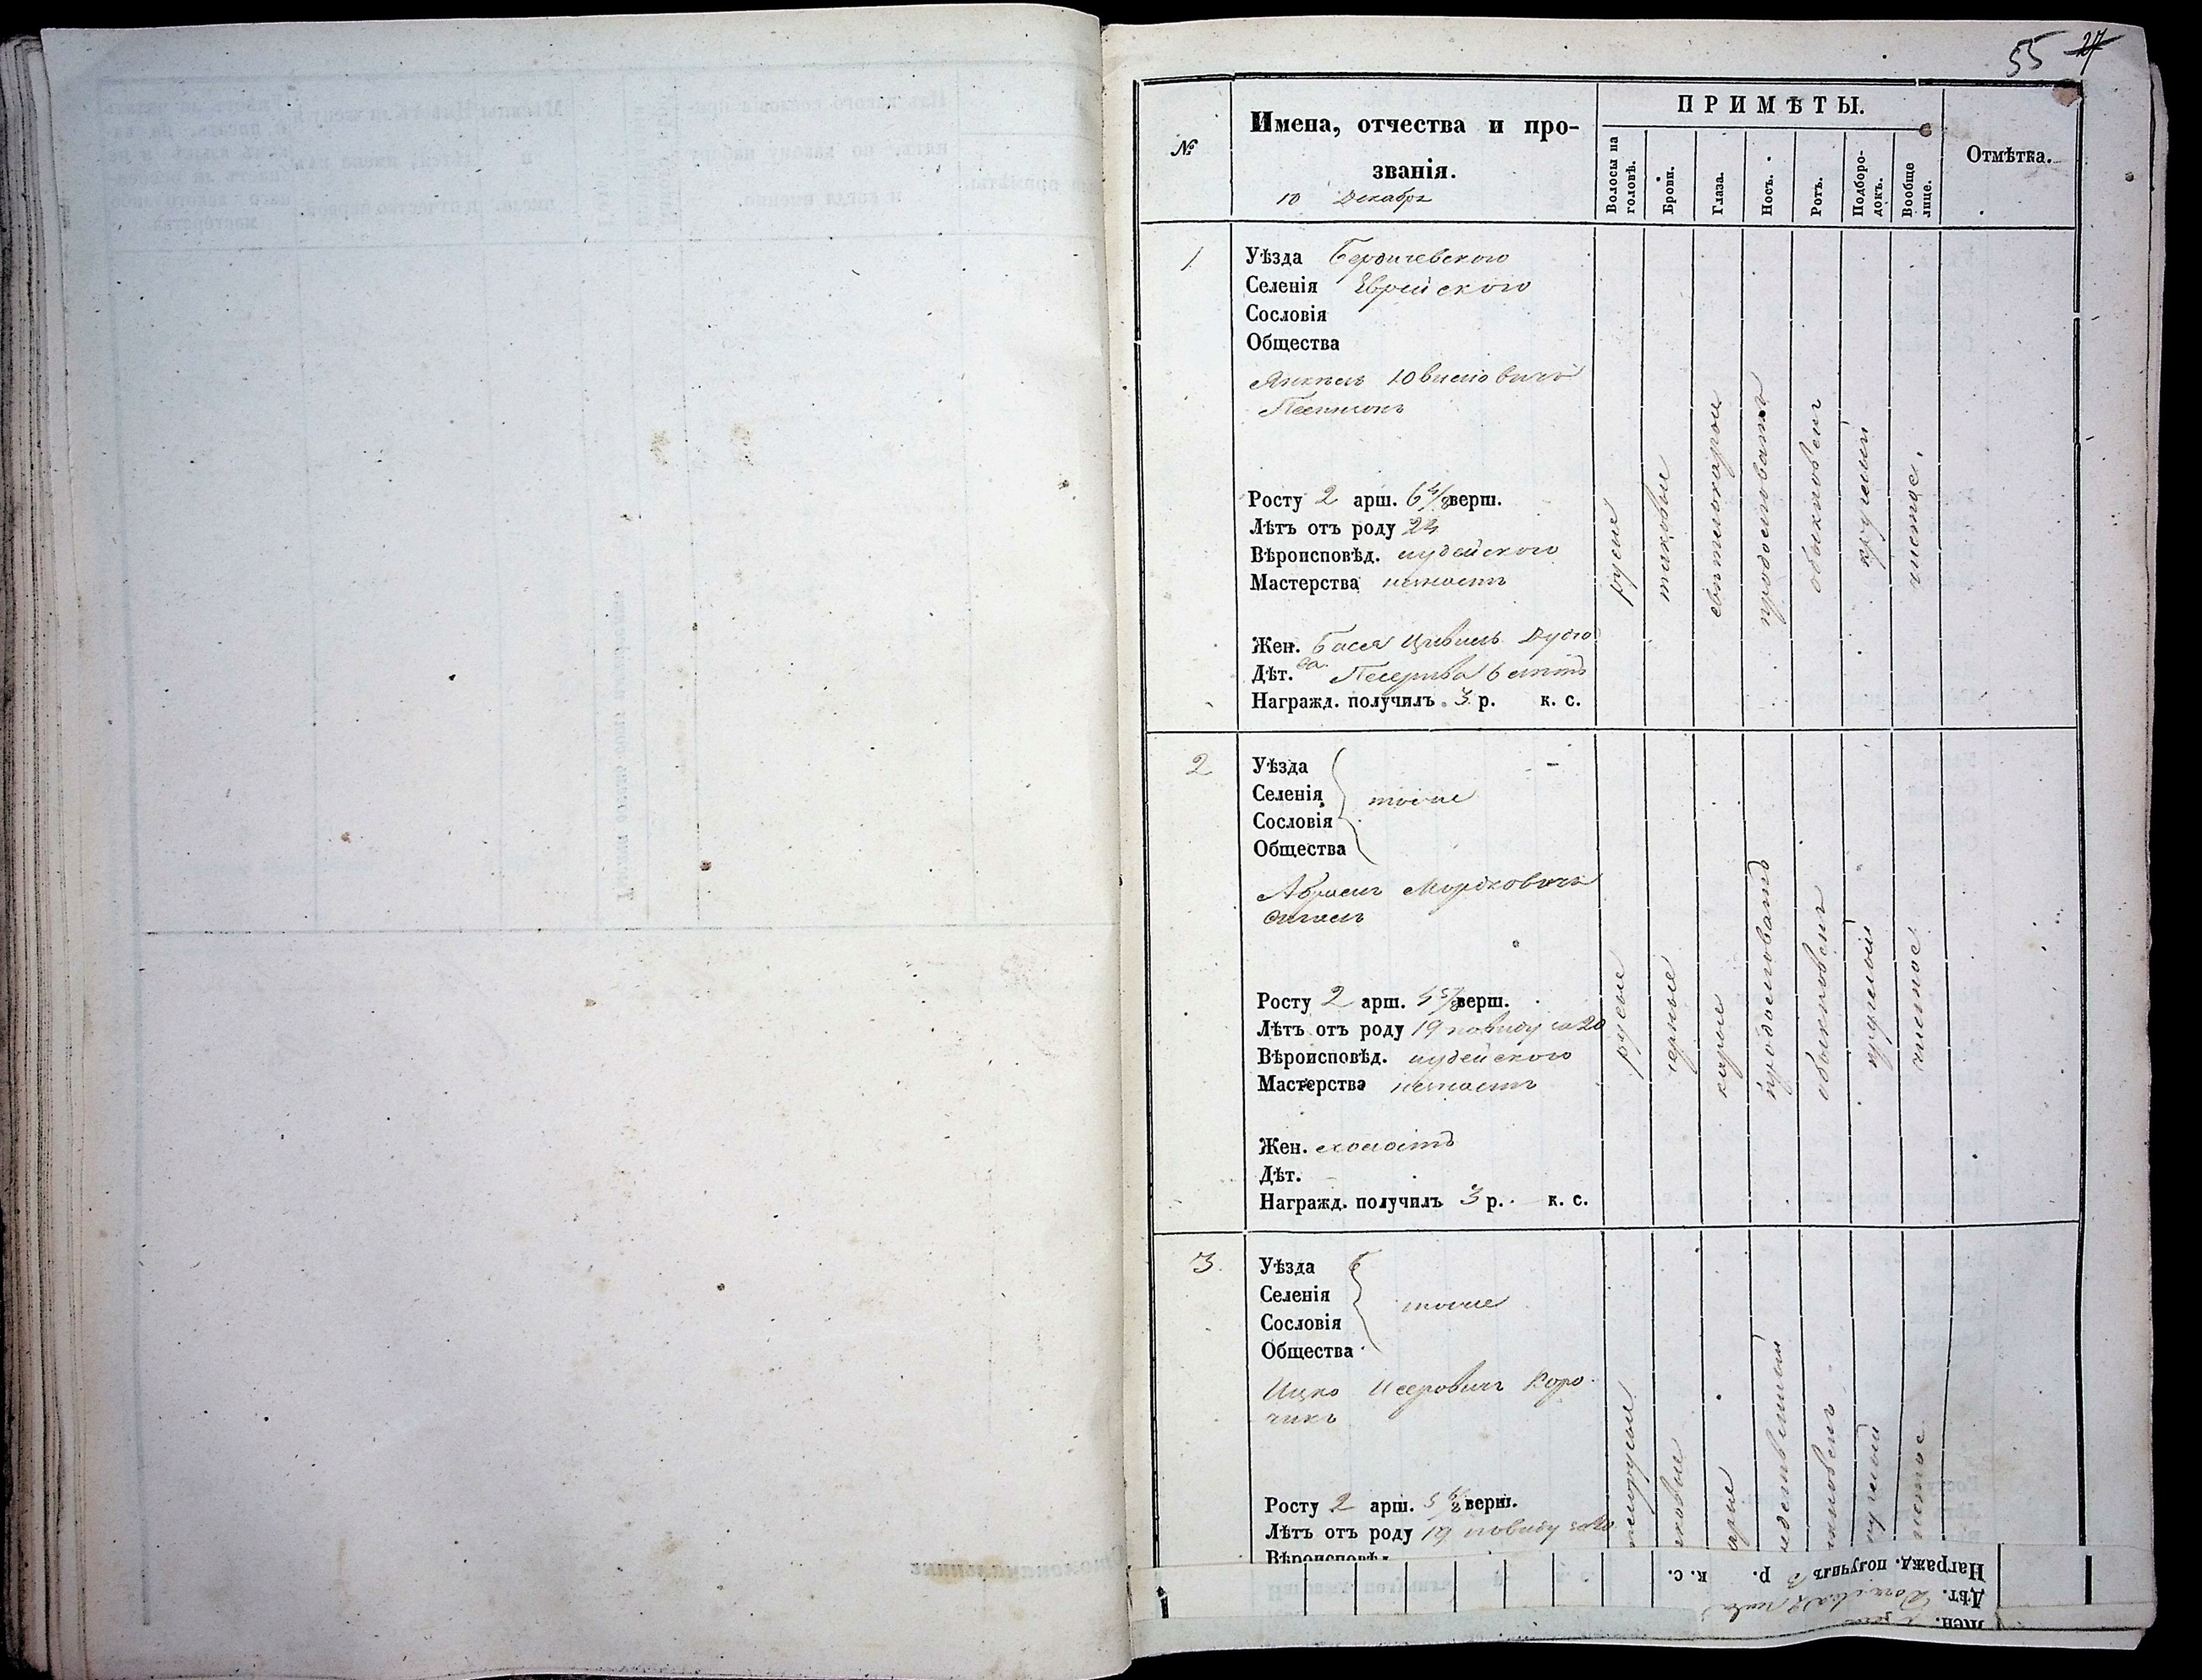 55 27
№
Имена, отчества и про-
званія.
10 Декабря
ПРИМѢТЫ.
Волосы на головѣ.
Брови.
Глаза.
Носъ.
Ротъ.
Подборо-
докъ.
Вообще
лице.
Отмѣтка.
1
Уѣзда Бердичевского
Селенія Еврейского
Сословія
Общества
Янкель
Росту 2 арш. 6 4/8 верш.
Лѣтъ отъ роду 24
Вѣроисповѣд. иудейского
Мастерства незнаетъ
Жен. Бася
Дѣт.
Награжд. получилъ 3 р. к. с.
русые
темновые
светлокарые
продолговатъ
обыкновен
круглый
чистое.
2
Уѣзда
Селенія
Сословія
Общества
тоже
Абрам Мордковичъ
Росту 2 арш. 4 5/8 верш.
Лѣтъ отъ роду 19 повиду за 20
Вѣроисповѣд. иудейского
Мастерства незнаетъ
Жен. холостъ
Дѣт.
Награжд. получилъ 3 р. к. с.
русые
черные
карые
продолговатъ
обыкновенъ
круглый
чистое
3
Уѣзда
Селенія
Сословія
Общества
тоже
Ицко Исерович Коро-
чикъ
Росту 2 арш. верш.
Лѣтъ отъ роду 19 повиду за 20
Вѣроисповѣд.
арые
кновенъ
чистое
Награжд. получилъ 3 р. к. с.
Дѣт.
Жен.